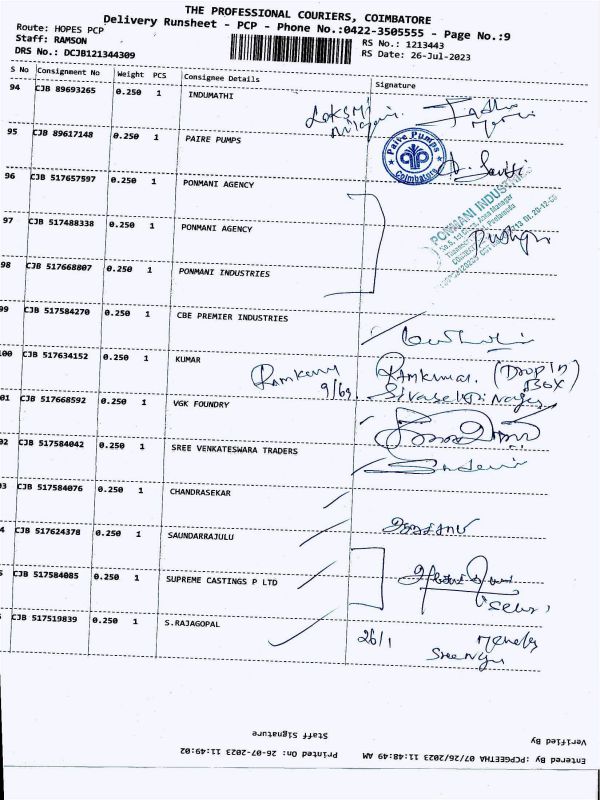 THE PROFESSIONAL COURIERS, COIMBATORE
Delivery Runsheet - PCP - Phone No.:0422-3505555 - Page No.:9
Route: HOPES PCP
Staff: RAMSON
DRS No.: DCJB121344309
RS No.: 1213443
RS Date: 26-Jul-2023
S No Consignment No Weight PCS Consignee Details Signature
94 CJB 89693265 0.250 1 INDUMATHI
95 CJB 89617148 0.250 1 PAIRE PUMPS
Paire Pumps
Coimbatore
96 CJB 517657597 0.250 1 PONMANI AGENCY
97 CJB 517488338 0.250 1 PONMANI AGENCY
98 CJB 517668807 0.250 1 PONMANI INDUSTRIES
99 CJB 517584270 0.250 1 CBE PREMIER INDUSTRIES
100 CJB 517634152 0.250 1 KUMAR
9/69 Ramkumar. (Drop In Box)
01 CJB 517668592 0.250 1 VGK FOUNDRY
02 CJB 517584042 0.250 1 SREE VENKATESWARA TRADERS
03 CJB 517584076 0.250 1 CHANDRASEKAR
4 CJB 517624378 0.250 1 SAUNDARRAJULU
5 CJB 517584085 0.250 1 SUPREME CASTINGS P LTD
6 CJB 517519839 0.250 1 S.RAJAGOPAL
26/1
Staff Signature
Verified By
Entered By :PCPGEETHA 07/26/2023 11:48:49 AM Printed On: 26-07-2023 11:49:02